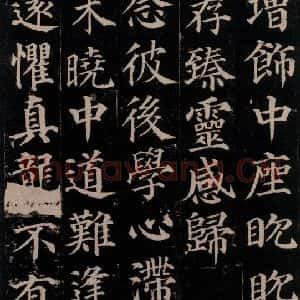 增飾中座眈眈
荐臻靈感歸
念彼後學心滯
未曉中道難逢
還懼真龍不有